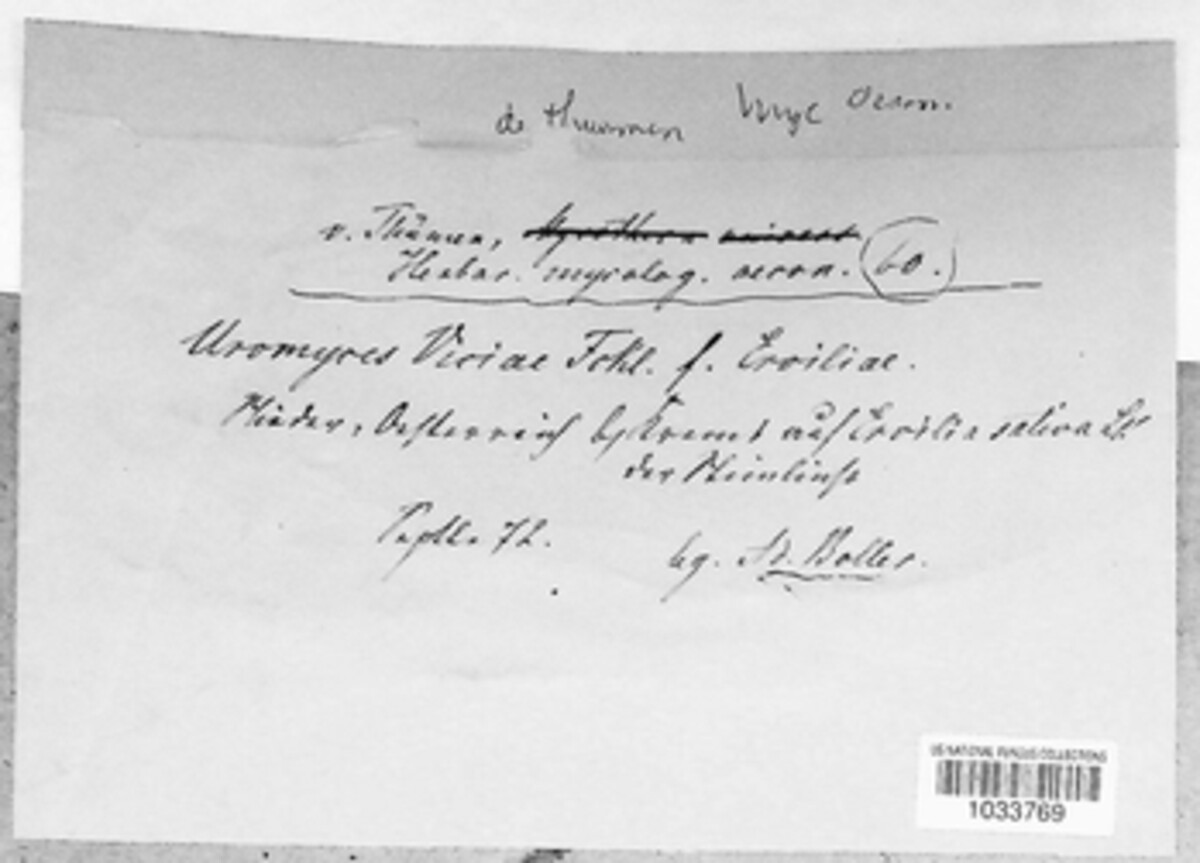 de thuemen Myc oecon.
v. Thümen, Mycotheca univers.
Herbar. mycolog. oecon. 60.
Uromyces Viciae Fckl. f. Erviliae.
Nieder-Oesterreich bei Krems auf Ervilia sativa Lk.
der
Septbr. 72.
leg. Ad. Boller.
US NATIONAL FUNGUS COLLECTIONS
1033769